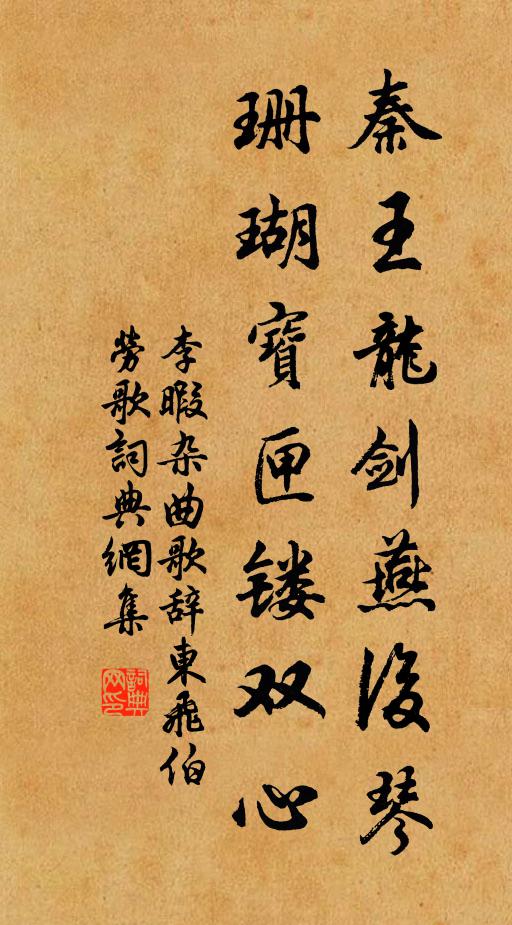 秦王龍剑燕後琴
珊瑚寶匣镂双心
李暇杂曲歌辞東飛伯
劳歌詞典網集
詞典网印